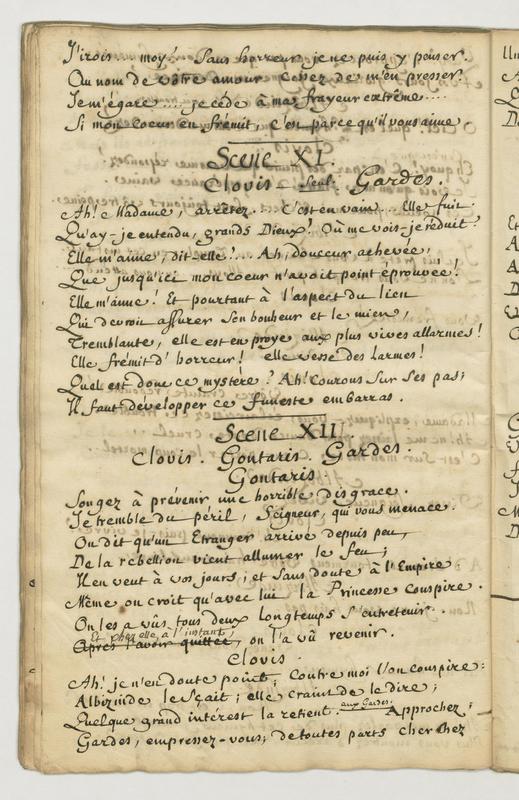 J'irois moy! Sans horreur je ne puis y penser.
Au nom de vôtre amour cessez de m'en presser.
Je m'égare .... je cède à ma frayeur extrême ....
Si mon coeur en frémit, c'est parce qu'il vous aime.
Scene XI.
Clovis - seul. Gardes.
Ah! Madame, arrêtez ... C'est en vain ... Elle fuit.
Qu'ay-je entendu, grands Dieux! Où me vois-je réduit!
Elle m'aime, dit-elle! ... Ah, douceur achevée,
Que jusqu'ici mon coeur n'avoit point éprouvée!
Elle m'aime! Et pourtant à l'aspect du lien
Qui devroit assurer son bonheur et le mien,
Tremblante, elle est en proye aux plus vives allarmes!
Elle frémit d'horreur! elle verse des larmes!
Quel est donc ce mystère? Ah! Courons sur ses pas;
Il faut développer ce funeste embarras.
Scene XII.
Clovis. Gontaris. Gardes.
Gontaris.
Songez à prévenir une horrible disgrace.
Je tremble du péril, Seigneur, qui vous menace.
On dit qu'un Etranger arrivé depuis peu,
De la rebellion vient allumer le feu;
Il en veut à vos jours; et sans doute à l'Empire
Même on croit qu'avec lui la Princesse conspire.
On les a vûs tous deux longtemps s'entretenir.
Et chez elle, à l'instant,
Après l'avoir quittée, on l'a vû revenir.
Clovis.
Ah! je n'en doute point, Contre moi l'on conspire:
Albizinde le sçait; elle craint de le dire;
Quelque grand intérest la retient. aux Gardes. Approchez;
Gardes, empressez-vous; de toutes parts cherchez